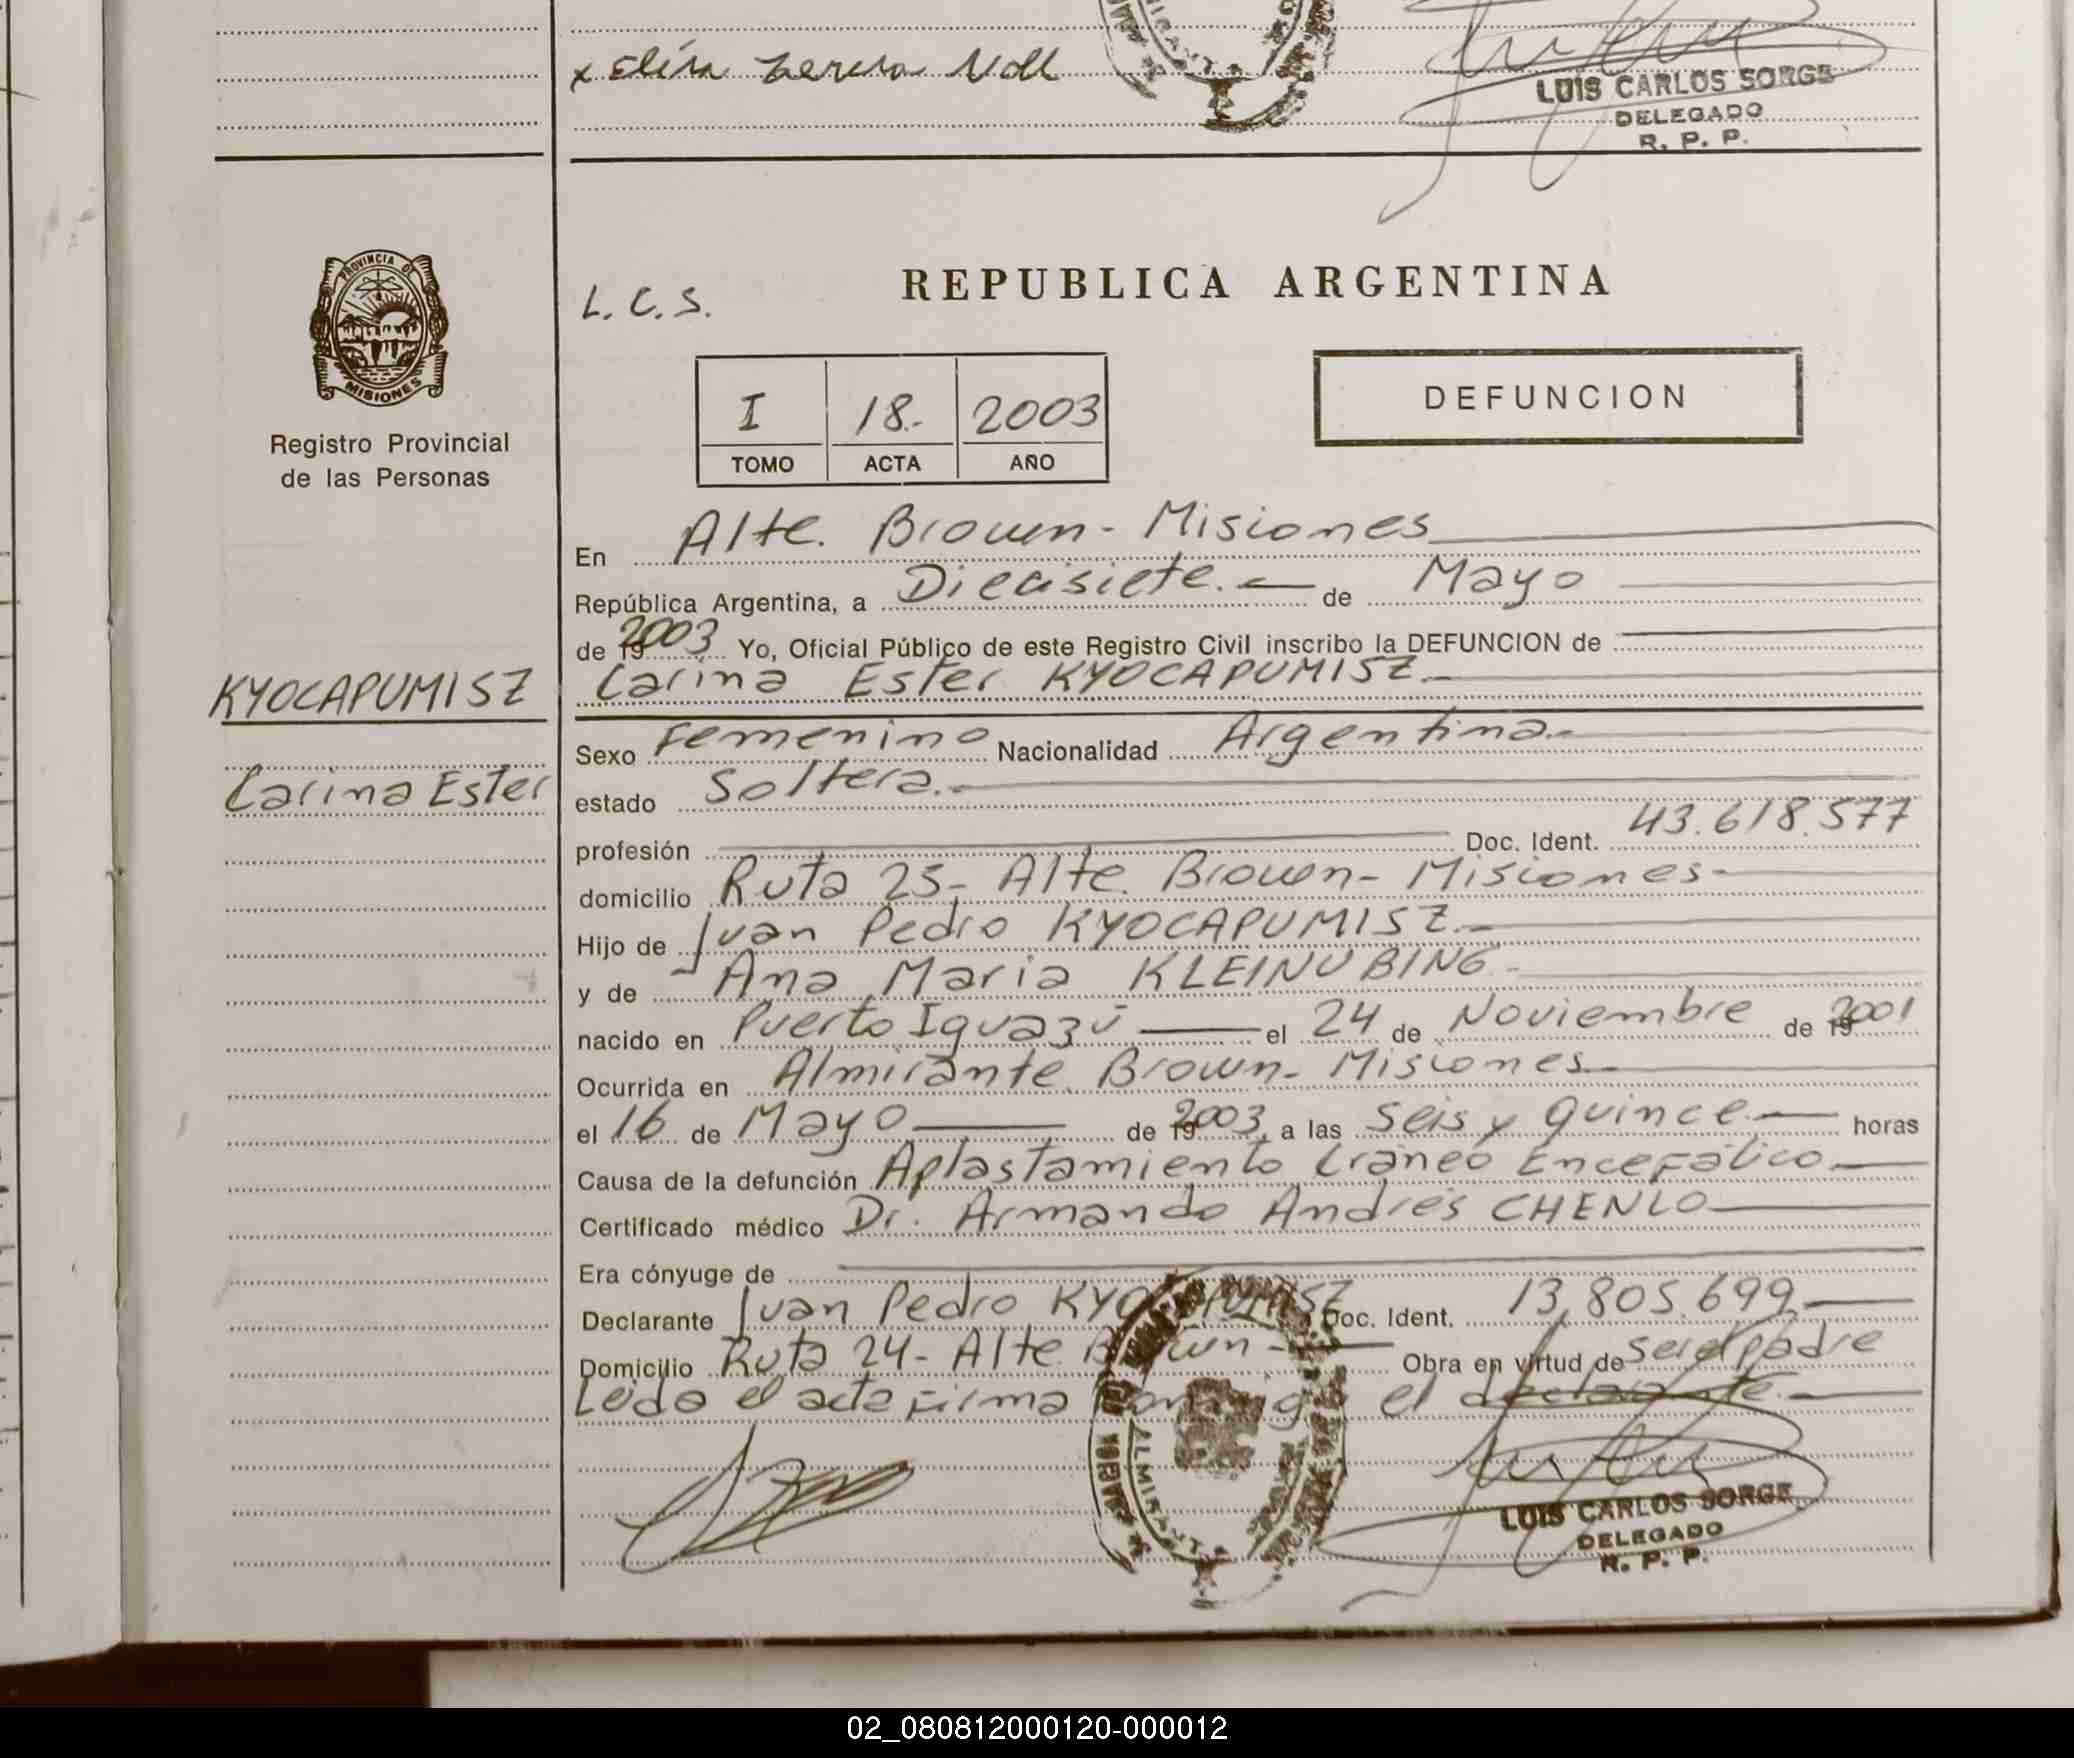 x Elisa Teresa Noll
LUIS CARLOS SORGE
DELEGADO
R. P. P.
PROVINCIA DE
MISIONES
Registro Provincial
de las Personas
L. C. S.
REPUBLICA ARGENTINA
I 18.- 2003
TOMO ACTA AÑO
DEFUNCION
En Alte. Brown - Misiones
República Argentina, a Diecisiete.- de Mayo
de 2003 Yo, Oficial Público de este Registro Civil inscribo la DEFUNCION de
KYOCAPUMISZ
Carina Ester KYOCAPUMISZ.-
Carina Ester
Sexo Femenino Nacionalidad Argentina.-
estado Soltera.-
profesión Doc. Ident. 43.618.577
domicilio Ruta 25- Alte. Brown- Misiones-
Hijo de Juan Pedro KYOCAPUMISZ.-
y de Ana Maria KLEINUBING-
nacido en Puerto Iguazú el 24 de Noviembre de 2001
Ocurrida en Almirante Brown- Misiones.-
el 16 de Mayo de 2003 a las Seis y quince.- horas
Causa de la defunción Aplastamiento Cráneo Encefálico.-
Certificado médico Dr. Armando Andrés CHENLO
Era cónyuge de
Declarante Juan Pedro KYOCAPUMISZ Doc. Ident. 13.805.699
Domicilio Ruta 24- Alte. Brown- Obra en virtud de ser el padre
Leída el acta firma conmigo el declarante.-
ALMIRANT
LUIS CARLOS SORGE
DELEGADO
R. P. P.
02_080812000120-000012